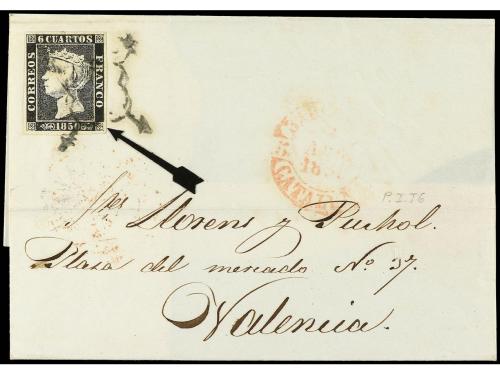 6 CUARTOS
CORREOS
FRANCO
1850
P.I.T6
Sres Llorens y Puchol.
Plaza del mercado Nº 37.
Valencia.